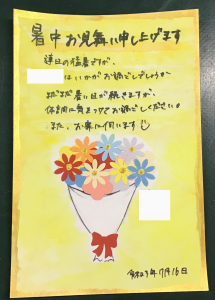 暑中お見舞い申し上げます
連日の猛暑ですが、
はいかがお過ごしでしょうか
まだまだ暑い日が続きますが、
体調に気をつけてお過ごしください。
また、お舞に伺います
令和3年7月16日